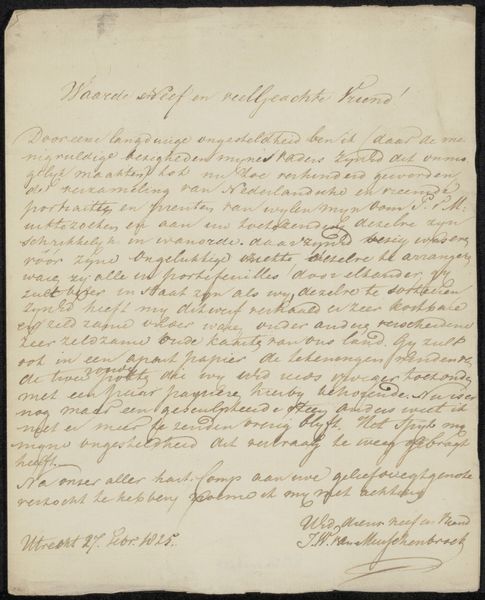 Waarde Neef en veelgeachte Vriend!
Door eene langdurige ongesteldheid ben ik (daar de me
nigvuldige bezigheden mynes vaders zynEd dit onmo
gelyk maakten) tot nu toe verhinderd geworden
de verzameling van Nederlandsche en vreemde
portraitten en prenten van wylen myn oom
uittezoeken en aan uw toetezenden dezelve zyn
schrikkelyk in wanorde. daar zynEd bezig was
vóór zyne ongelukkige ziekte dezelve te arrangeren
waren zy alle in portefeuilles door elkander, gy
zult beter in staat zyn als wy dezelve te sortieren
zynEd heeft my dikwerf verhaald er zeer kostbare
en zeldzame onder waren onder andere verscheidene
zeer zeldzame oude kaarten van ons land. Gy zult
ook in een apart papier de tekeningen vinden
de twee die wy UEd reeds vroeger toezonden
met een paar papieren hierby behoorende. Nu is er
nog maar een steen anders weet ik
niet er meer te zenden overig blyft. Het spyt my
myne ongesteldheid dit vertraag te weeg gebragt
heeft.
Na onser aller hart. Comp aan uwe geliefde echtgenote
verzocht te hebben, noeme ik my met achting
UEd. dienw neef en Vriend
Utrecht 27. Febr. 1825.
J. W. van Musschenbroek